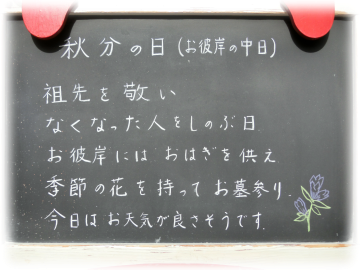 秋分の日(お彼岸の中日)
祖先を敬い
なくなった人をしのぶ日
お彼岸には おはぎを供え
季節の花を持って お墓参り.
今日は お天気が良さそうです.